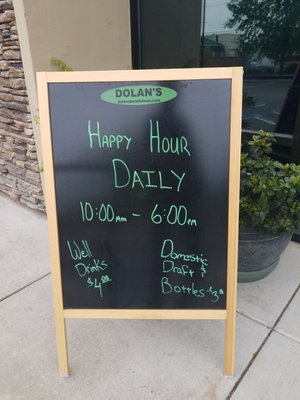 DOLAN'S
Happy Hour
Daily
10:00am - 6:00pm
Well
Drinks
$4.00
Domestic
Draft &
Bottles - $3.00